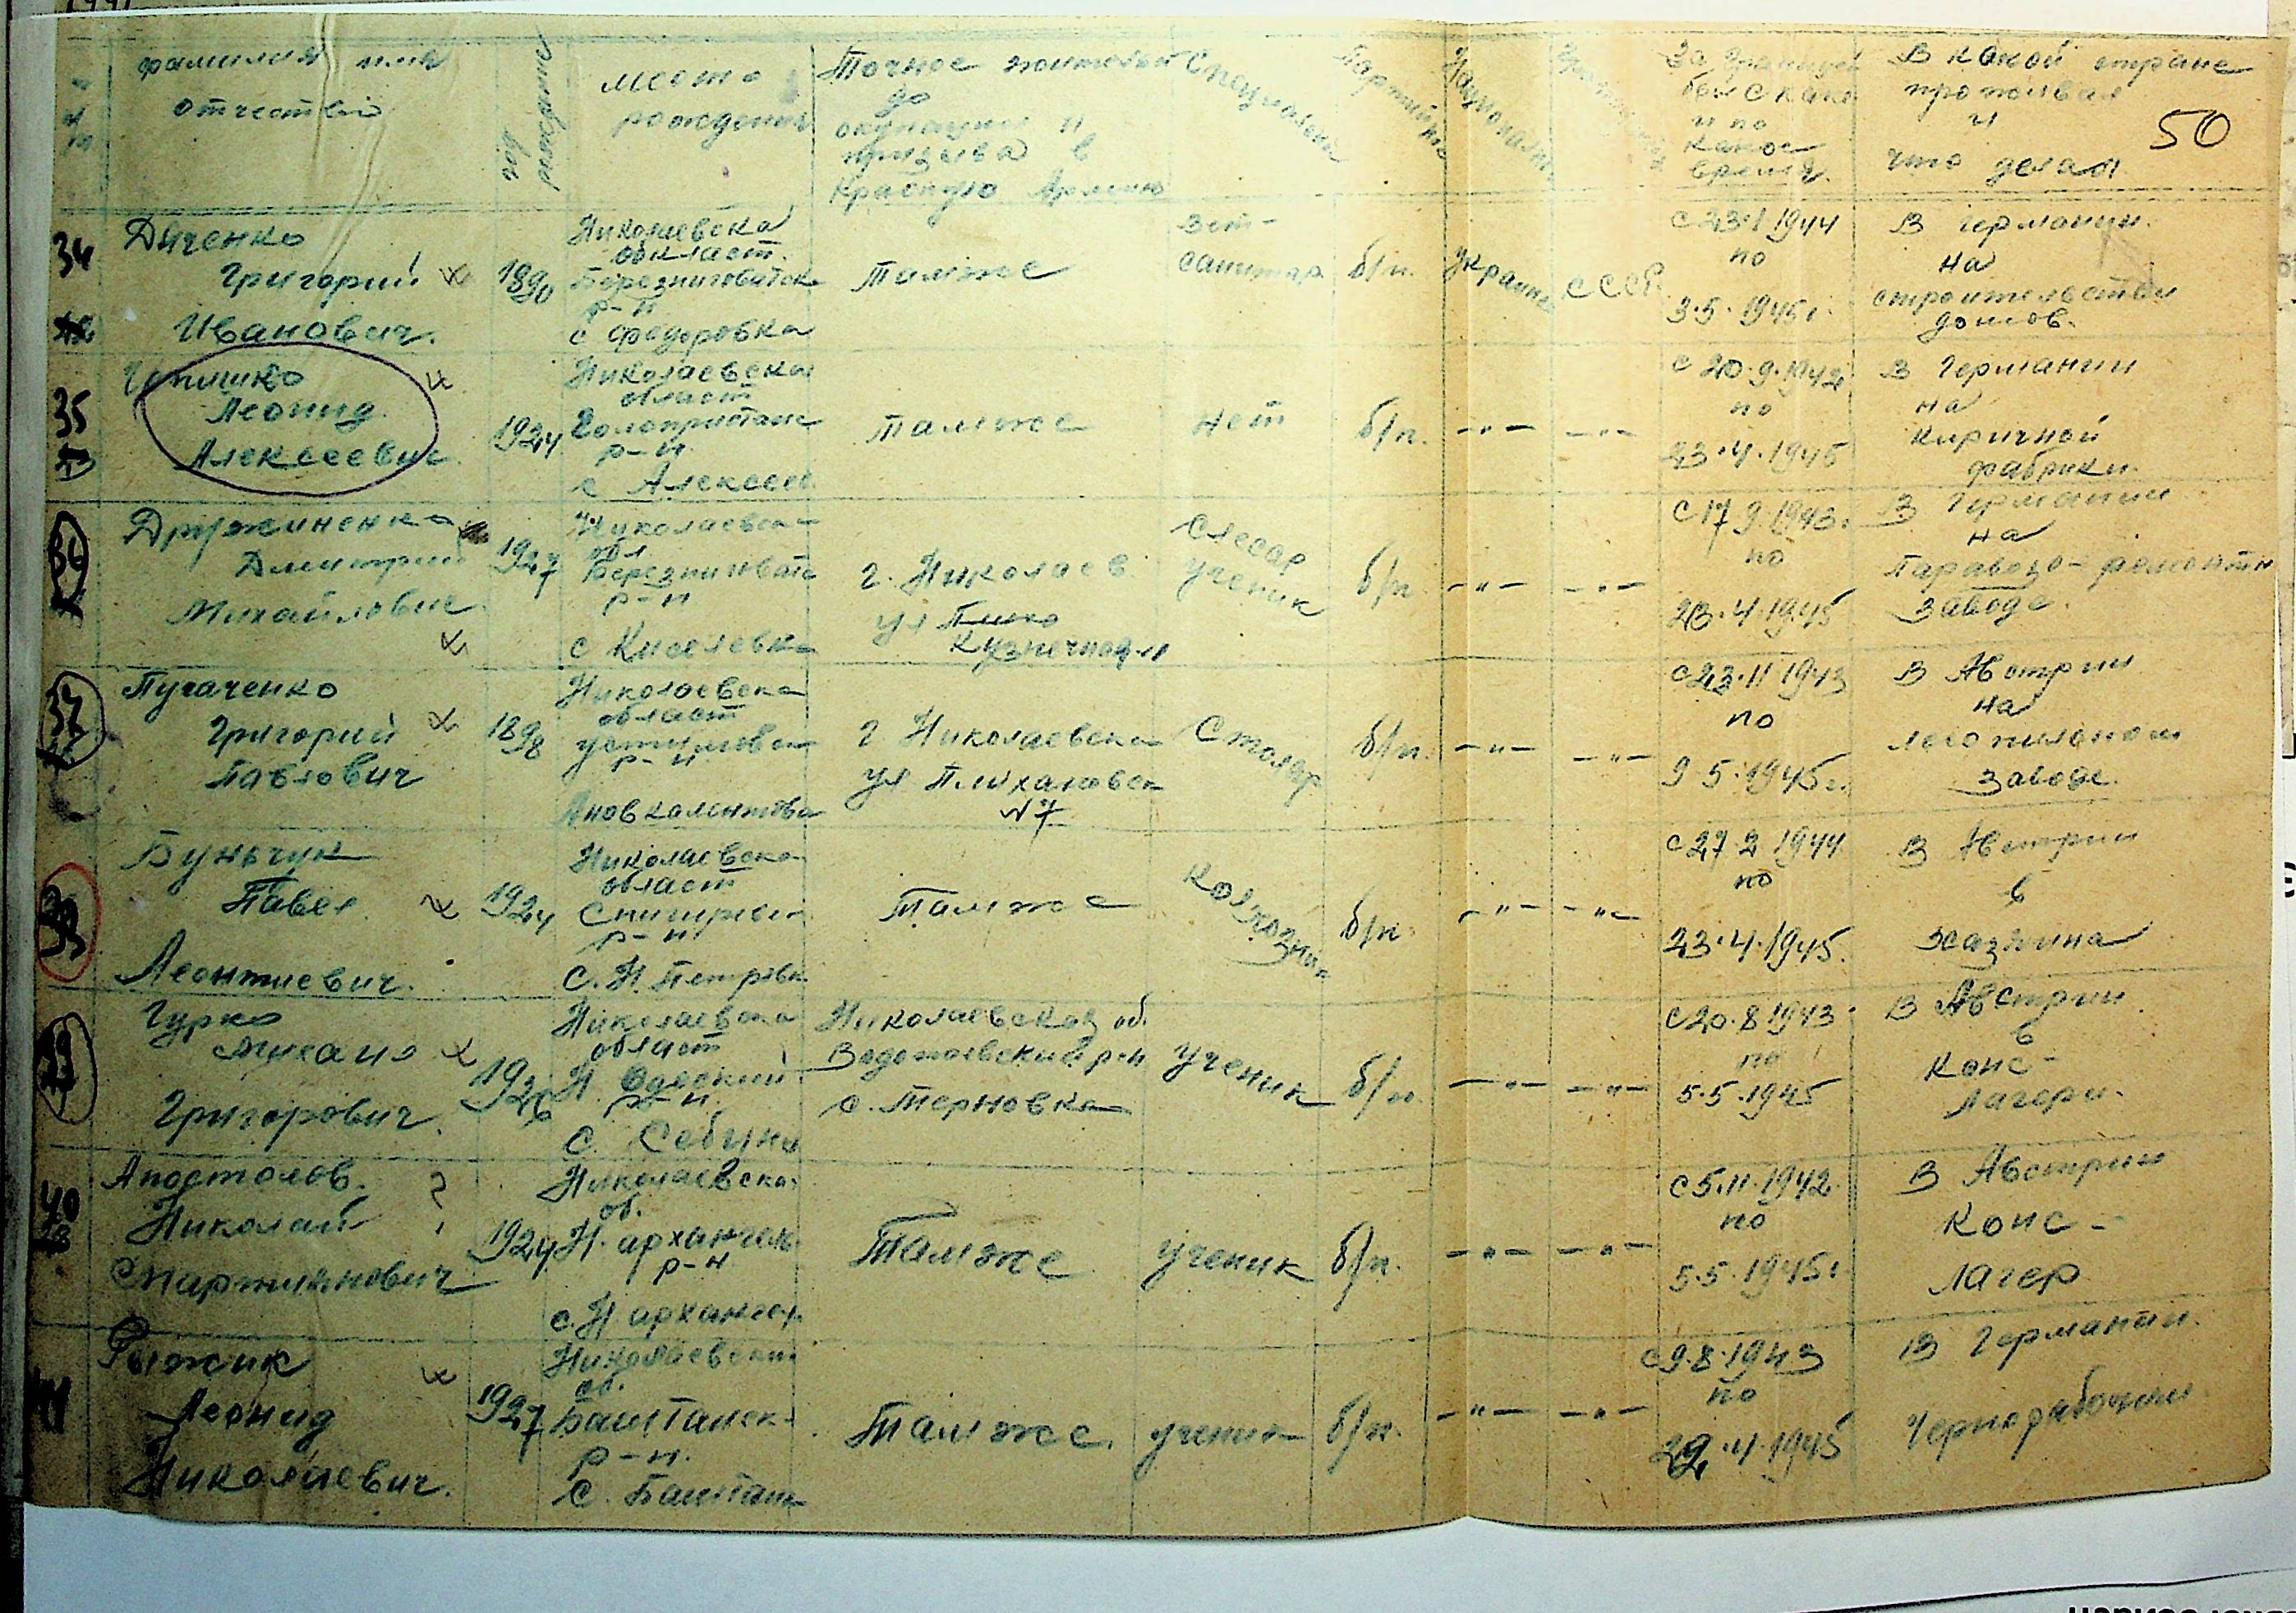 фамилия имя
отчество
год рождения
место
рождения
Точное жительст
до
окупации и
призыва в
Красную Армию
Специальн
Партийно
Националн
За границей
был с како
и по
какое
время.
В какой стране
проживал
и
что делал
50
34
Диченко
Григорий
Иванович.
1890
Николаевска
область.
р-н
с Федоровка
Тамже
Вет-
санитар
б/п.
Украине
СССР
с 23.1 1944
по
3.5.1945 г.
В Германии.
на
строительства
домов.
35
Леонид
Алексеевич.
1924
Николаевска
област
Голопристанс
р-н.
с Алексеев
Тамже
нет
б/п.
-"-
-"-
с 20.9.1942
по
23.4.1945
В Германии
на
Кирпичной
фабрики.
36
Дружиненко
Дмитрий
Михайлович
1927
Николаевск-
обл
р-н
с Киселевка
г. Николаев
ул
Слесар
ученик
б/п
-"-
-"-
с 17 9.1943.
по
23.4.1945
В Германии
на
Паравозо-ремонтн
Заводе.
37
Пугаченко
Григорий
Павлович
1898
Николаевска
област
р-н
г. Николаевска
ул Плихановск
№7
Столяр
б/п.
-"-
-"-
с 23.11 1943
по
9 5.1945 г.
В Австрии
на
лесопильном
Заводе.
Буньчук
Павел
Леонтиевич.
1924
Николаевска
област
Снигирев
р-н.
с. Н. Петровк
Тамже
Колхозник
б/п.
-"-
-"-
с 27 2 1944
по
23.4.1945.
В Австрии
в
Хазяина
39
Гурко
Михаил
Григорович.
1926
Николаевска
област
Н Одеский
р-н.
с. Себино
Николаевской об.
р-н
с. Терновка
ученик
б/п.
-"-
-"-
с 20.8 1943.
по
5.5.1945
В Австрии
в
Конс-
Лагери.
40
Апостолов.
Николай
1924
Николаевска
об.
Н. архангель
р-н
с. Н архангел
Тамже
ученик
б/п.
-"-
-"-
с 5.11.1942.
по
5.5.1945 г.
В Австрии
Конс-
Лагер
41
Рыжик
Леонид
Николаевич.
1927
Николаевски
об.
Баштанск.
р-н.
с. Баштанк
Тамже.
ученик
б/п.
-"-
-"-
с 9.8.1943
по
29.4.1945
В Германии.
Чернорабочим